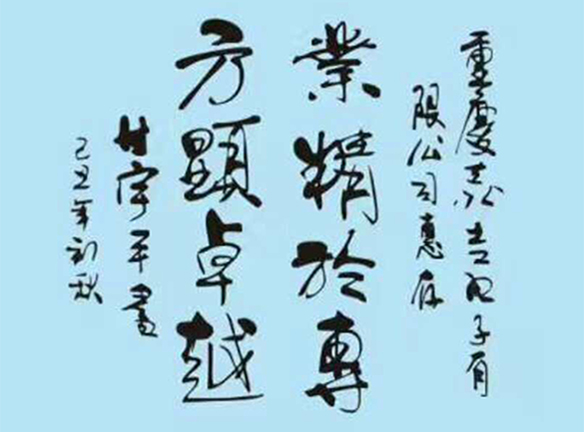 重慶吉电子有
限公司惠存
業精於專
方顯卓越
甘宇平書
己丑年初秋